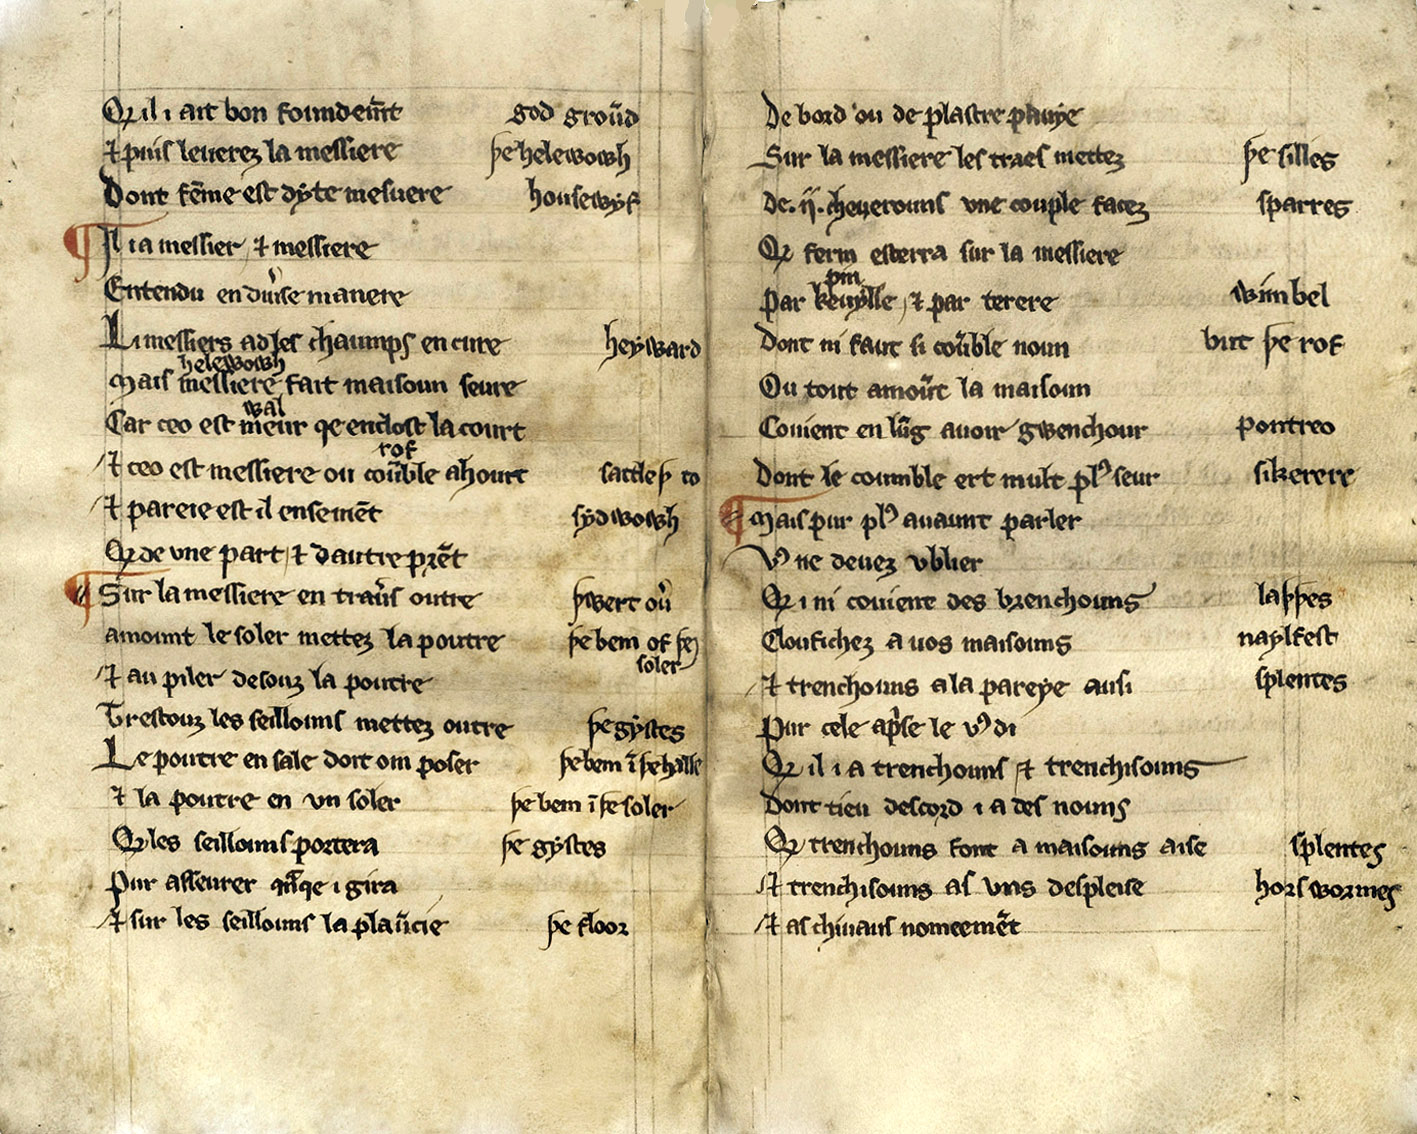 Q̄ il i ait bon foundem̄t god groūd
⁊ puis leuerez la messiere þe helewowh
Dont fēme est dyte mesuere housewyf
¶ Il i a messier / ⁊ messiere
Entendu en diu̾se manere
Li messiers ad les chaumps en cure heyward
helewowh
Mais messiere fait maisoun seure
wal
Car ceo est meur qe enclost la court
rof
⁊ ceo est messiere ou cou̾ble ahourt sattleþ to
⁊ pareie est il ensemēt sydwowh
Q̄ de vne part / ⁊ dautre prēt
¶ Sur la messiere en trau̾s outre þwert ou̾
amount le soler mettez la poutre þe bem of þe
soler
⁊ au piler desouz la poutre
Trestouz les seillouns mettez outre þe gystes
Le poutre en sale doit om poser þe bem ī þe halle
⁊ la poutre en vn soler þe bem ī þe soler
Q̄ les seillouns portera þe gystes
Pur asseurer qᵃnqe i gira
⁊ sur les seillouns la plau̾cie þe floor
De bord ou de plastre pauye
Sur la messiere les traes mettez þe silles
de .ij. cheuerouns vne couple facez sparres
Q̄ ferm esterra sur la messiere
pin
Par keuylle / ⁊ par terere wimbel
Dont ni faut si cou̾ble noun but þe rof
Ou tout amoūt la maisoun
Couient en lūg auoir gwenchour pontreo
Dont le coumble ert mult plꝰ seur sikerere
¶ Mais pur plꝰ auaunt parler
Vꝰ ne deuez vblier
Q̄ i ni couient des brenchouns laþþes
Cloufichez a uos maisouns naylfest
⁊ trenchouns a la pareye ausi splentes
Pur cele ap̾se le vꝰ di
Q̄ il i a trenchouns / ⁊ trenchisouns
Dont tieu descord i a des nouns
Q̄ trenchouns font a maisouns aise splentes
⁊ trenchisouns as vns despleise hors wormes
⁊ as chiuaus nomeemēt